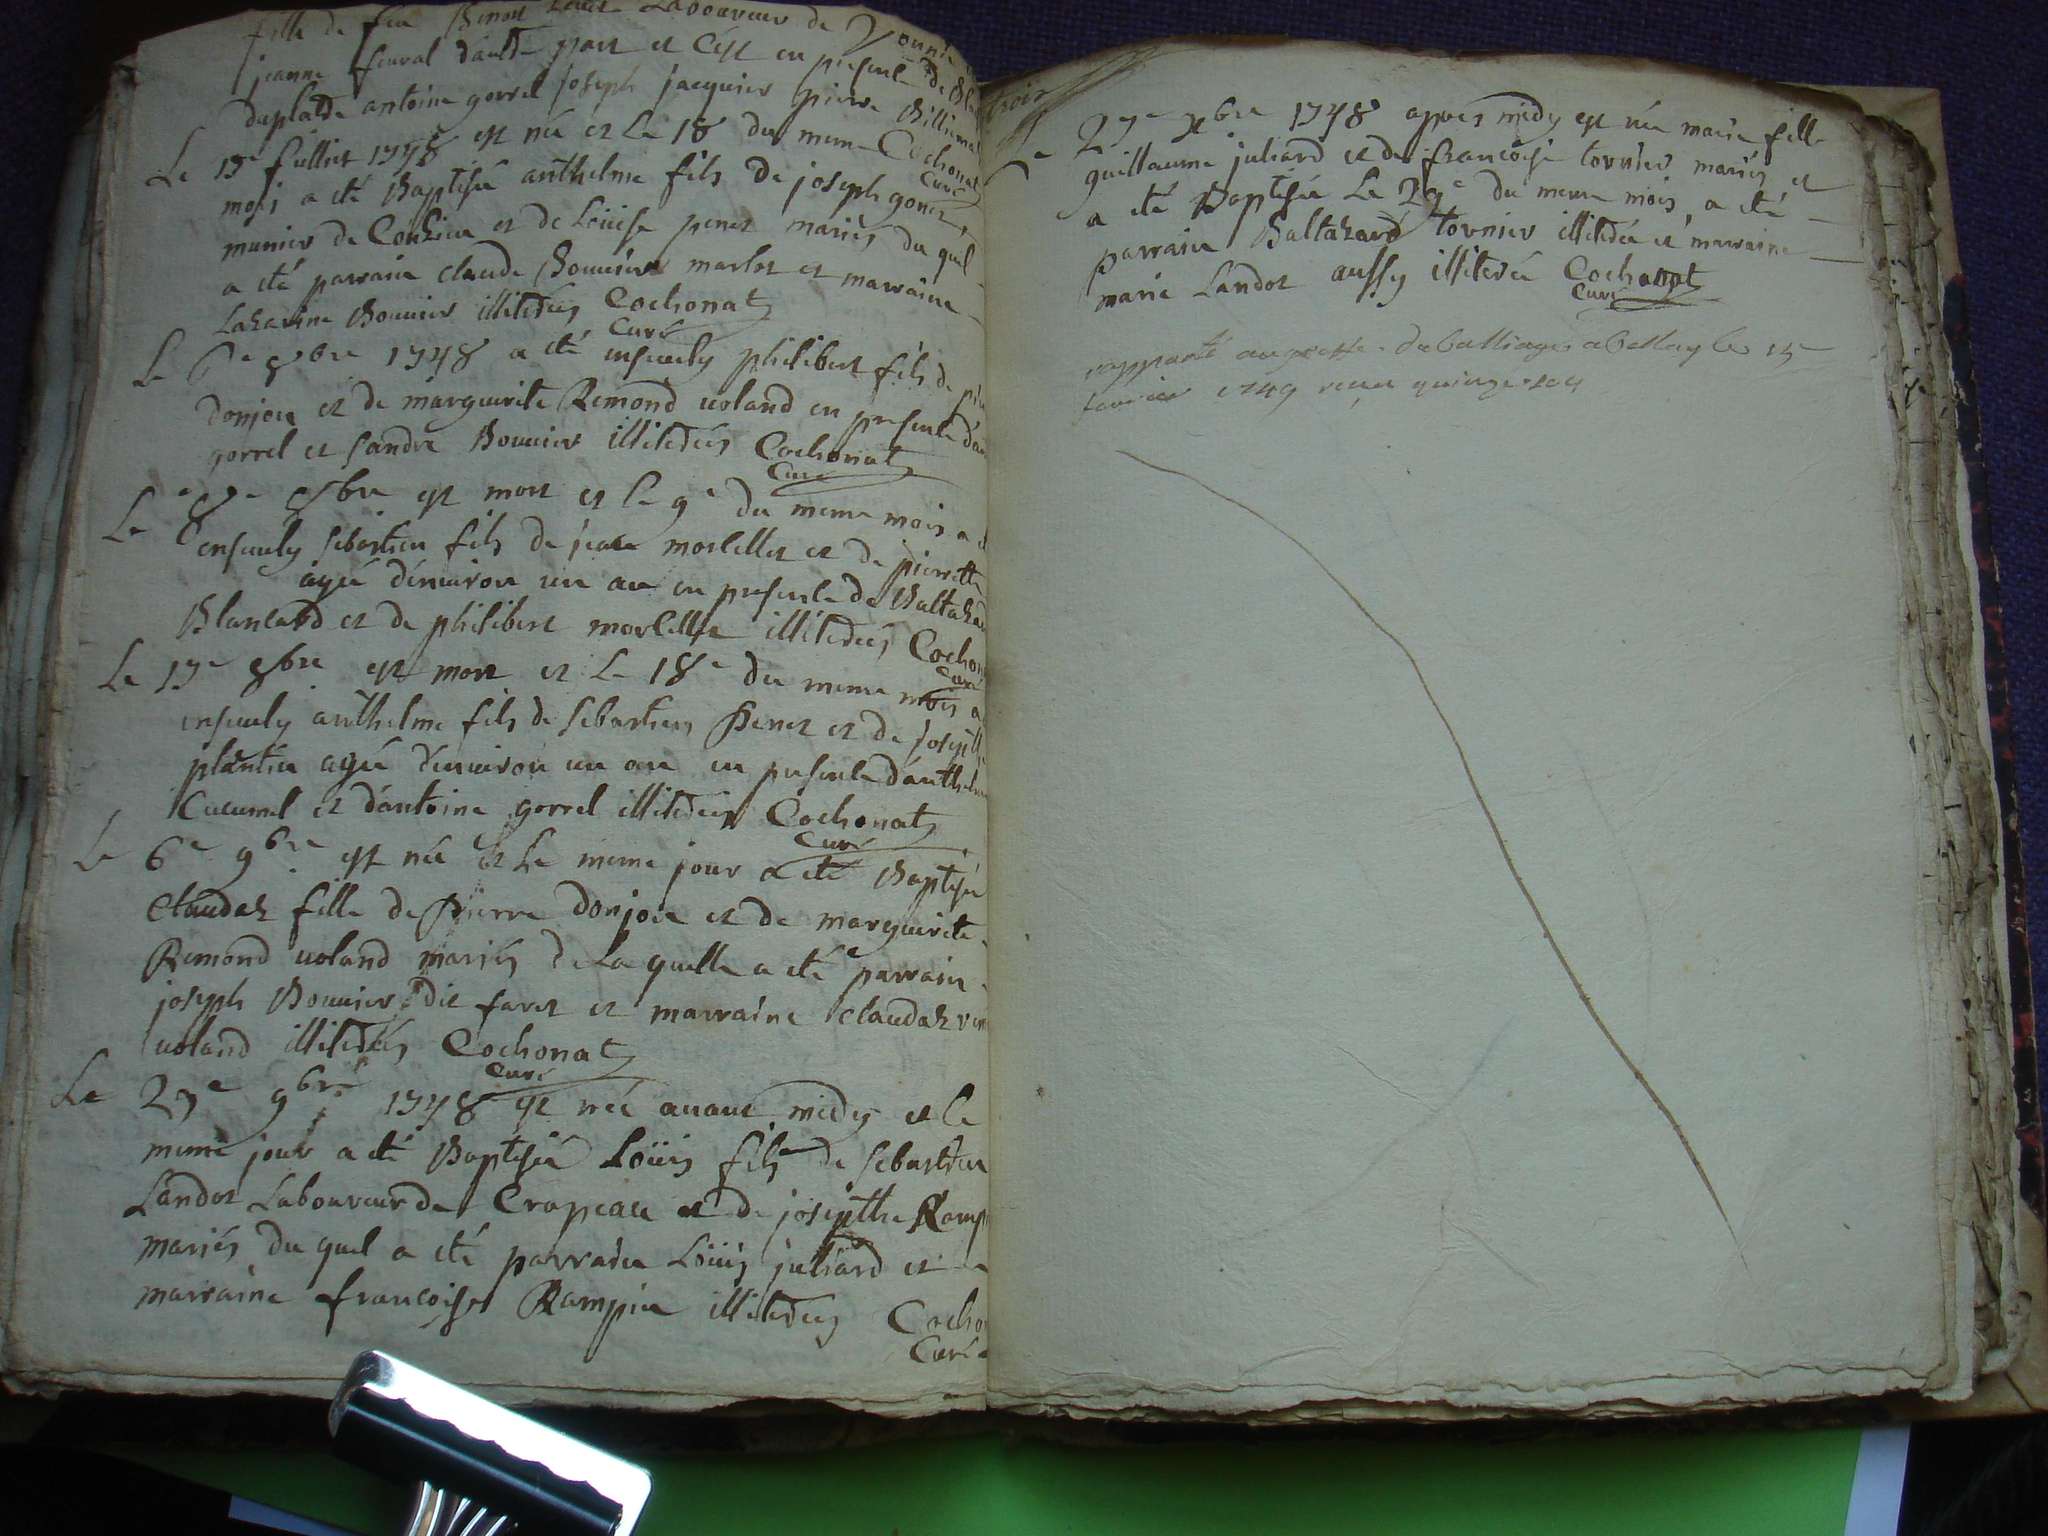 fille de feu Benoit Laboureur de
jeanne feural d'aultre part et c'est en presence de
duplatre antoine gorrel joseph jacquier pierre Billiema
Cochonat
Curé
Le 17e juillet 1748 est née et Le 18 du meme
mois a eté Baptisée anthelme fils de joseph gonet
munier de Conzieu et de Loüise penet mariés du quel
a eté parrain claude Bouvier marlot et marraine
Lazarine Bouvier illitérés Cochonat
Curé
Le 6e 8bre 1748 a eté ensevely philibert fils de
donjou et de marguerite Remond uoland en presence d'an
gorrel et sandre Bouvier illiterés Cochonat
Curé
Le 8e 8bre est mort et le 9e du meme mois a
ensevely sebastien fils de jean morlellet et de pierrette
agé d'environ un an en presence de Baltazar
Blancard et de philibert morlellet illiterés Cochon
Curé
Le 17e 8bre est mort et Le 18e du meme mois a
ensevely anthelme fils de sebastien penet et de josepthe
plantin agé d'environ un an en presence d'anthelme
Cucumel et d'antoine gorrel illiterés Cochonat
Curé
Le 6e 9bre est née et Le meme jour a eté Baptisée
Claudaz fille de Pierre donjou et de marguerite
Remond uoland mariés de La quelle a eté parrain
joseph Bouvier dit faret et marraine claudaz
uoland illiterés Cochonat
Curé
Le 27e 9bre 1748 est née avant midy et le
meme jour a eté Baptisée Loüis fils de sebastien
Landot Laboureur de Crapeau et de josepthe Ramp
mariés du quel a eté parrain Loüis juliard et
marraine francoise Rampin illiterés Cocho
Curé
trois
Le 27e xbre 1748 apres midy est née marie fille
guillaume juliard et de francoise tornier mariés et
a eté Baptisée Le 29e du meme mois, a eté
parrain Baltazard tornier illiterée et marraine
marie Landot aussy illiterée Cochonat
Curé
rapporté au greffe du balliage a bellay le 15e
fevrier 1749 recu quinze sols